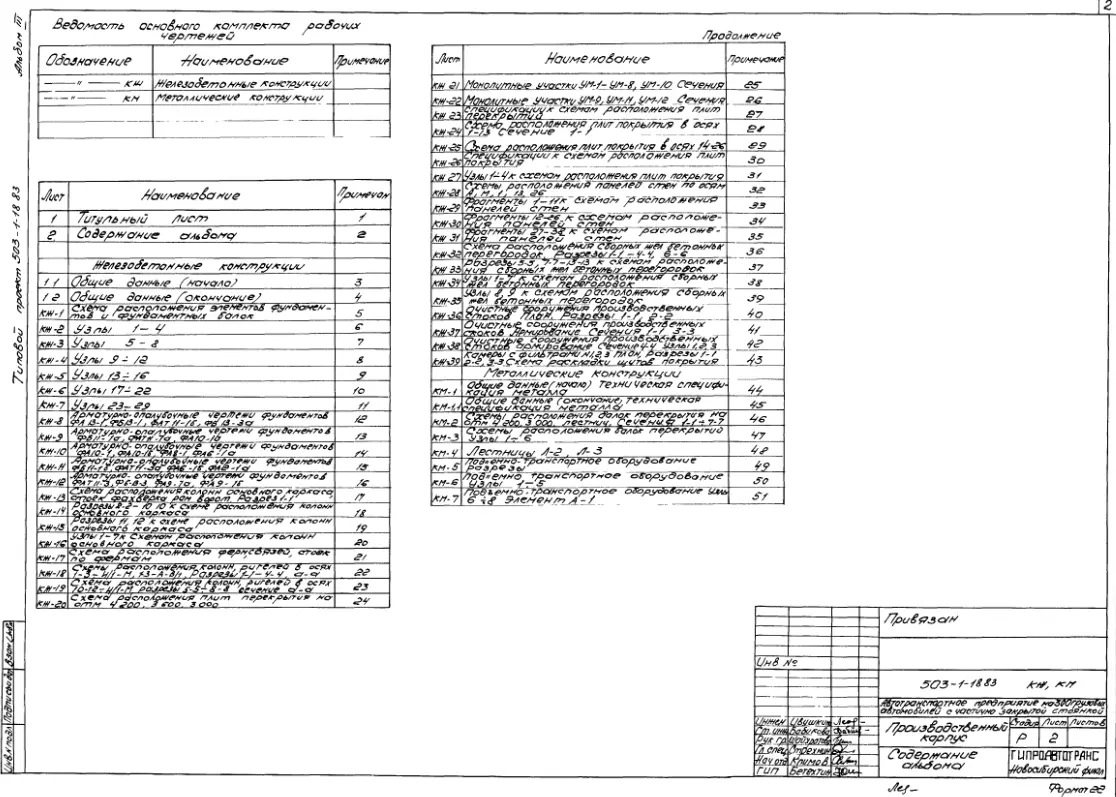 2
Альбом III
Типовой проект 503-1-18.83
Ведомость основного комплекта рабочих
чертежей
Обозначение Наименование Примечание
— " — КЖ Железобетонные конструкции
— " — КМ Металлические конструкции
Лист Наименование Примечан
1 Титульный лист 1
2 Содержание альбома 2
Железобетонные конструкции
1.1 Общие данные (начало) 3
1.2 Общие данные (окончание) 4
КЖ-1 Схема расположения элементов фундамен-
тов и фундаментных балок 5
КЖ-2 Узлы 1-4 6
КЖ-3 Узлы 5-8 7
КЖ-4 Узлы 9-12 8
КЖ-5 Узлы 13-16 9
КЖ-6 Узлы 17-22 10
КЖ-7 Узлы 23-29 11
КЖ-8 Арматурно-опалубочные чертежи фундаментов 12
КЖ-9 Арматурно-опалубочные чертежи фундаментов 13
КЖ-10 Арматурно-опалубочные чертежи фундаментов 14
КЖ-11 Арматурно-опалубочные чертежи фундаментов 15
КЖ-12 Арматурно-опалубочные чертежи фундаментов 16
КЖ-13 Схема расположения колонн основного каркаса,
стоек фахверка, рам ворот. Разрез 1-1 17
КЖ-14 Разрезы 2-2 - 10-10 к схеме расположения колонн
основного каркаса 18
КЖ-15 Разрезы 11, 12 к схеме расположения колонн
основного каркаса 19
КЖ-16 Узлы 1-7 к схемам расположения колонн
основного каркаса 20
КЖ-17 Схема расположения ферм, связей, стоек
по фермам 21
КЖ-18 Схемы расположения колонн, ригелей в осях 22
КЖ-19 Схема расположения колонн, ригелей в осях 23
КЖ-20 Схема расположения плит перекрытия на
отм. 4.200, 3.600, 3.000 24
Продолжение
Лист Наименование Примечание
КЖ-21 Монолитные участки УМ-1-УМ-8, УМ-10 Сечения 25
КЖ-22 Монолитные участки УМ-9, УМ-11, УМ-12 Сечения 26
КЖ-23 Спецификации к схемам расположения плит
перекрытий 27
КЖ-24 Схема расположения плит покрытия в осях
1-13 Сечение 1-1 28
КЖ-25 Схема расположения плит покрытия в осях 14-26 29
КЖ-26 Спецификации к схемам расположения плит
покрытия 30
КЖ-27 Узлы 1-4 к схемам расположения плит покрытия 31
КЖ-28 Схемы расположения панелей стен по осям
А, М, 1, 13, 26 32
КЖ-29 Фрагменты 1-11 к схемам расположения
панелей стен 33
КЖ-30 Фрагменты 12-26 к схемам расположе-
ния панелей стен 34
КЖ-31 Фрагменты 27-32 к схемам расположе-
ния панелей стен 35
КЖ-32 Схема расположения сборных жел.бетонных
перегородок. Разрезы 1-1 - 4-4, 6-6 36
КЖ-33 Разрезы 5-5, 7-7-13-13 к схемам расположе-
ния сборных жел.бетонных перегородок 37
КЖ-34 Узлы 1-7 к схемам расположения сборных
жел.бетонных перегородок 38
КЖ-35 Узлы 8, 9 к схемам расположения сборных
жел.бетонных перегородок 39
КЖ-36 Очистные сооружения производственных
стоков. План. Разрезы 1-1, 2-2 40
КЖ-37 Очистные сооружения производственных
стоков. Армирование. Сечения 1-1 - 3-3 41
КЖ-38 Очистные сооружения производственных
стоков. Армирование. Сечение 4-4. Узлы 1,2,3 42
КЖ-39 Камеры с фильтрами №1,2,3 План, разрезы 1-1
2-2, 3-3 Схема раскладки щитов покрытия 43
Металлические конструкции
КМ-1 Общие данные (начало) Техническая специфи-
кация металла 44
КМ-1.1 Общие данные (окончание) техническая
спецификация металла 45
КМ-2 Схемы расположения балок перекрытия на
отм. 4.200, 3.000, лестниц. Сечения 1-1-7-7 46
КМ-3 Схемы расположения балок перекрытий
Узлы 1-6 47
КМ-4 Лестницы Л-2, Л-3 48
КМ-5 Подъемно-транспортное оборудование
Разрезы 49
КМ-6 Подъемно-транспортное оборудование
Узлы 1-5 50
КМ-7 Подъемно-транспортное оборудование Узлы
6-8 Элемент А-1 51
Привязан
Инв №
503-1-18.83 КЖ, КМ
Автотранспортное предприятие на 300 грузовых
автомобилей с частично закрытой стоянкой
Производственный
корпус
Стадия Лист Листов
Р 2
Содержание
альбома
ГИПРОАВТОТРАНС
Новосибирский филиал
Инжен Ивушкин
Ст. инж Бабикова
Рук гр
Гл. спец
Нач отд Климов
ГИП Бегехтин
Инв.№ подл. Подпись и дата Взам. инв.№
Формат 22